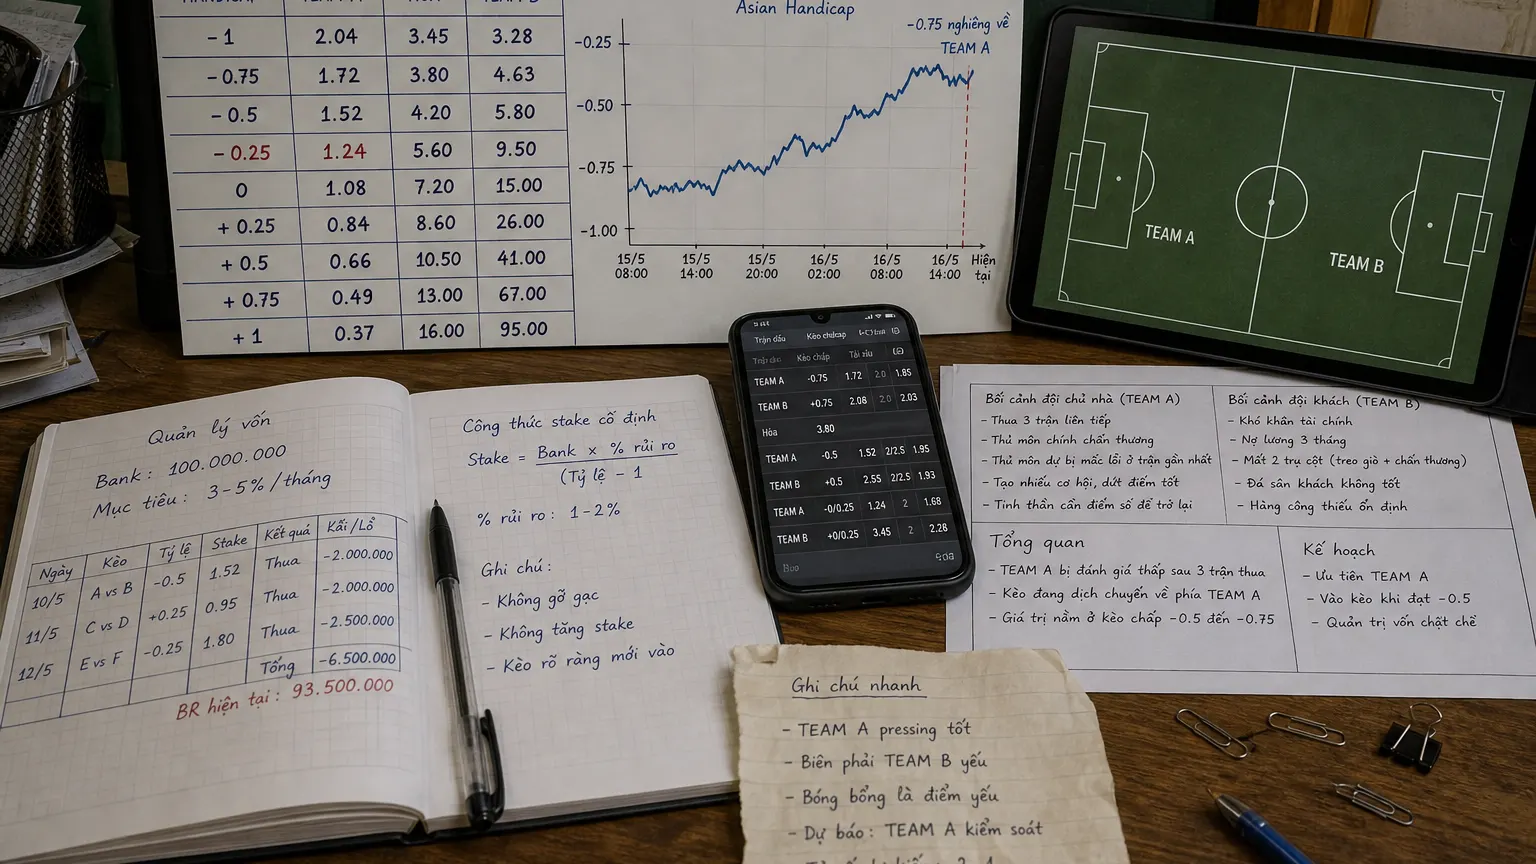 - 1 2.04 3.45 3.28
- 0.75 1.72 3.80 4.63
- 0.5 1.52 4.20 5.80
- 0.25 1.24 5.60 9.50
0 1.08 7.20 15.00
+ 0.25 0.84 8.60 26.00
+ 0.5 0.66 10.50 41.00
+ 0.75 0.49 13.00 67.00
+ 1 0.37 16.00 95.00
Asian Handicap
-0.75 nghiêng về
TEAM A
-0.25
-0.50
-0.75
-1.00
15/5 15/5 15/5 16/5 16/5 16/5 Hiện
08:00 14:00 20:00 02:00 08:00 14:00 tại
TEAM A
TEAM B
Quản lý vốn
Bank : 100.000.000
Mục tiêu : 3-5% /tháng
Ngày Kèo Tỷ lệ Stake Kết quả Kãi/Lỗ
10/5 A vs B -0.5 1.52 Thua -2.000.000
11/5 C vs D +0.25 0.95 Thua -2.000.000
12/5 E vs F -0.25 1.80 Thua -2.500.000
Tổng -6.500.000
BR hiện tại : 93.500.000
Công thức stake cố định
Stake = Bank x % rủi ro
(Tỷ lệ - 1
% rủi ro : 1-2%
Ghi chú :
- Không gỡ gạc
- Không tăng stake
- Kèo rõ ràng mới vào
Trận đấu
Kèo chấp
TEAM A -0.75 1.72 2.0 1.85
TEAM B +0.75 2.08 2.0 2.03
Hòa 3.80
TEAM A -0.5 1.52 2/2.5 1.95
TEAM B +0.5 2.55 2/2.5 1.93
TEAM A -0/0.25 1.24 2 1.68
TEAM B +0/0.25 3.45 2 2.28
Bối cảnh đội chủ nhà (TEAM A)
- Thua 3 trận liên tiếp
- Thủ môn chính chấn thương
- Thủ môn dự bị mắc lỗi ở trận gần nhất
- Tạo nhiều cơ hội, dứt điểm tốt
- Tinh thần cần điểm số để trở lại
Bối cảnh đội khách (TEAM B)
- Khó khăn tài chính
- Nợ lương 3 tháng
- Mất 2 trụ cột (treo giò + chấn thương)
- Đá sân khách không tốt
- Hàng công thiếu ổn định
Tổng quan
- TEAM A bị đánh giá thấp sau 3 trận thua
- Kèo đang dịch chuyển về phía TEAM A
- Giá trị nằm ở kèo chấp -0.5 đến -0.75
Kế hoạch
- Ưu tiên TEAM A
- Vào kèo khi đạt -0.5
- Quản trị vốn chặt chẽ
Ghi chú nhanh
- TEAM A pressing tốt
- Biên phải TEAM B yếu
- Bóng bổng là điểm yếu
- Dự báo : TEAM A kiểm soát